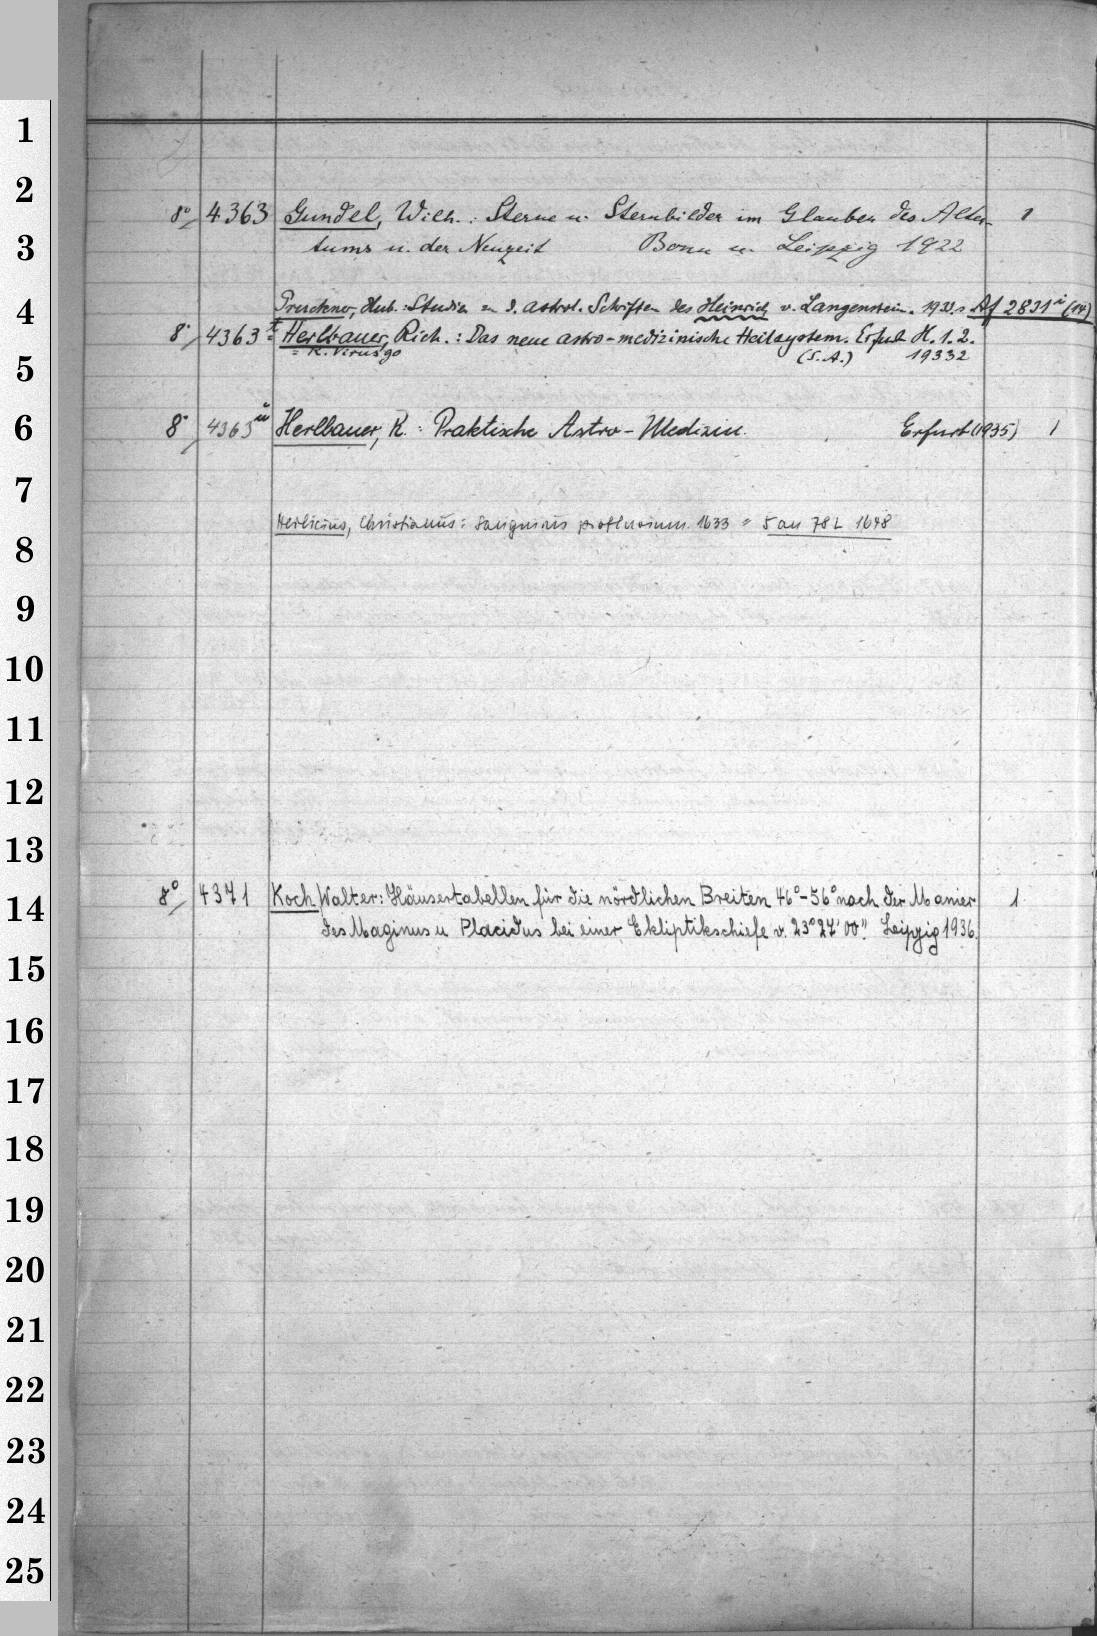 1
2
8° 4363 Gundel, Wilh.: Sterne u. Sternbilder im Glauben des Alter- 1
3
tums u. der Neuzeit Bonn u. Leipzig 1922
4
Pruckner, Hub.: Studien zu d. astrol. Schriften des Heinrich v. Langenstein. 1933. s Af 2831 i (14)
8° 4363 t Herlbauer, Rich.: Das neue astro-medizinische Heilsystem. Erfurt H. 1. 2.
= R. Virusgo (S. A.) 19332
5
6
8° 4363 u Herlbauer, R.: Praktische Astro-Medizin. Erfurt (1935) 1
7
Herlicius, Christianus: Sanguinis profluvium 1633 = 5 an 78 L 1648
8
9
10
11
12
13
14
8° 4371 Koch Walter: Häusertabellen für die nördlichen Breiten 46°-56° nach der Manier 1
des Maginus u Placidus bei einer Ekliptikschiefe v. 23° 27' 00". Leipzig 1936.
15
16
17
18
19
20
21
22
23
24
25